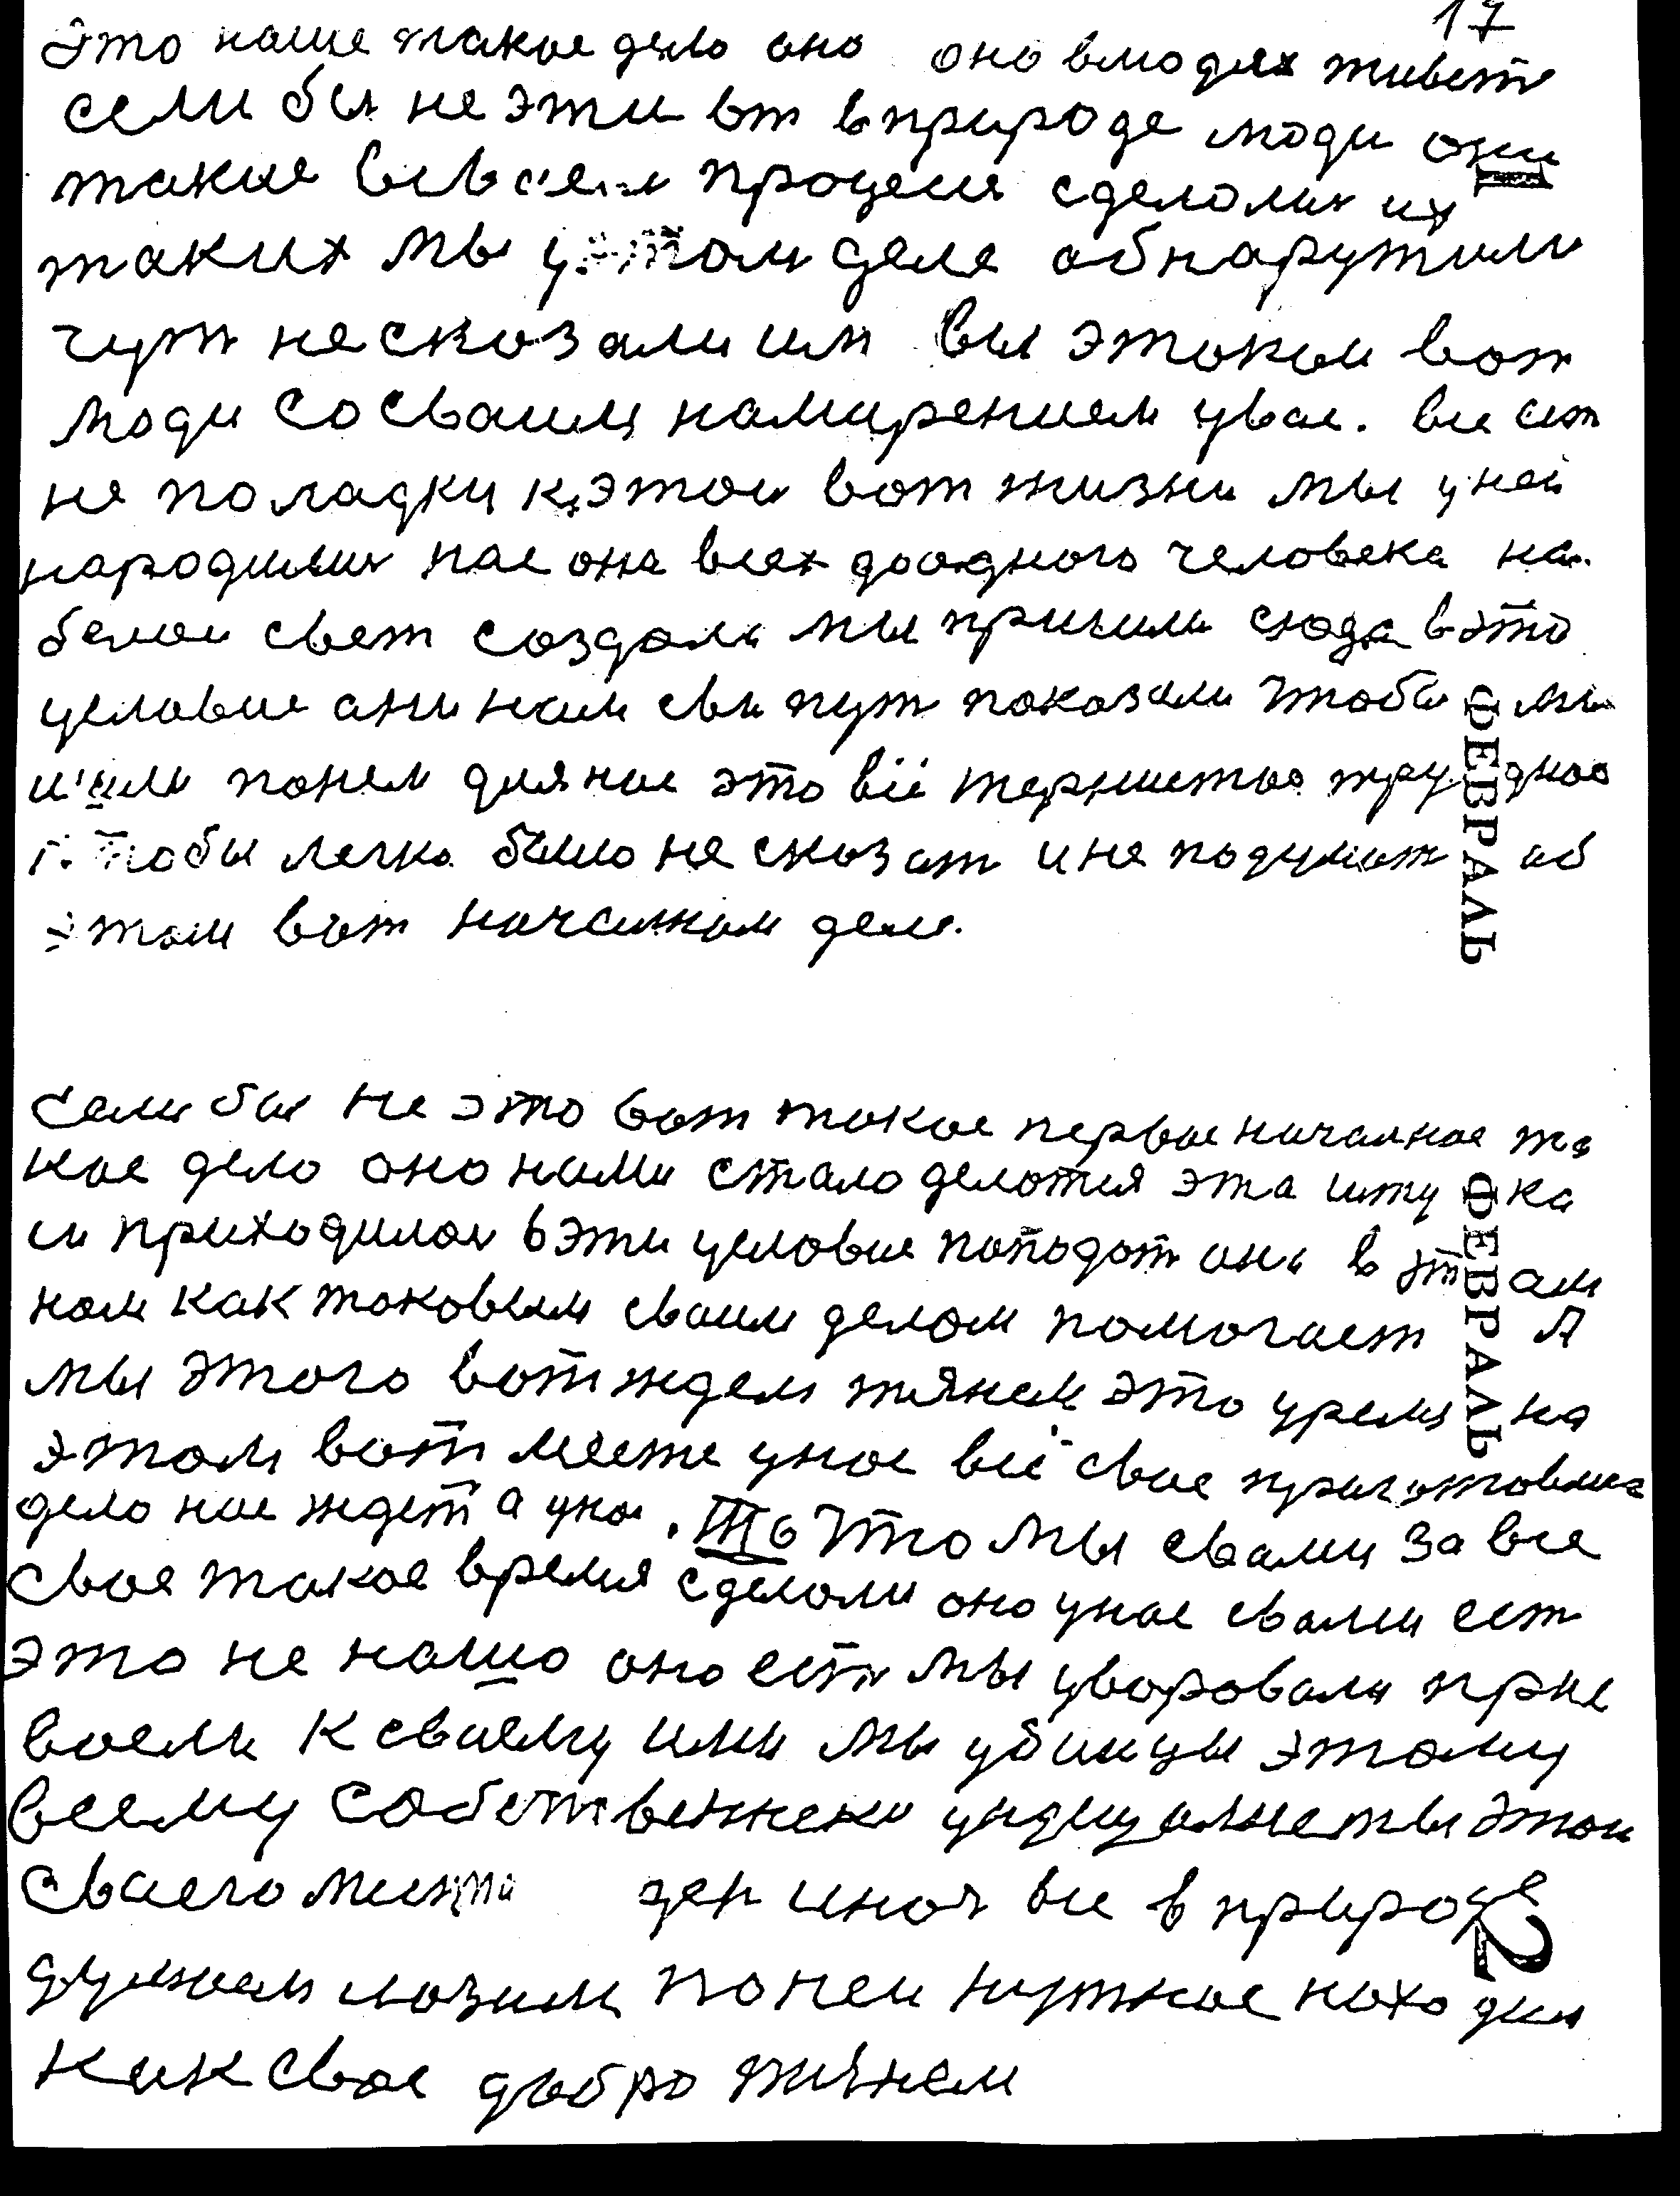 17
Это наше такое дело оно оно влюдях живет
если бы не эти вт вприроде люди они
такие
таких мы у этом деле обнаружили
чут несказали им вы этокои вот
люди сосваим намирением увас. все ест
не поладки кэтои вот жизни мы у неи
народилис нас она всех доодного человека на
белои свет создала мы пришли сюда вэто
условие они нам сви пут показали чтобы мы
шли понем для нас это всё тернистое трудное
чтобы легко было не сказат и не подумат об
этом вот началном деле.
ФЕВРАЛЬ
если бы не это вот такое первое началное та
кое дело оно нами стало делатся эта штука
и приходилос в эти условие пападат она в этом
нам как таковым сваим делом помогает А
мы этого вот ждем тянем это время на
этом вот месте унас всё свое приготовлиное
дело нас ждет а унас. То что мы свами за все
свое такое время сделали оно унас свами ест
это не нашо оно ест мы уворовали прис
воели к сваему или мы убиицы этому
всему
сваего места ден и ноч все в природе
думаем лазим понеи нужное находим
как свое добро тянем
ФЕВРАЛЬ
2